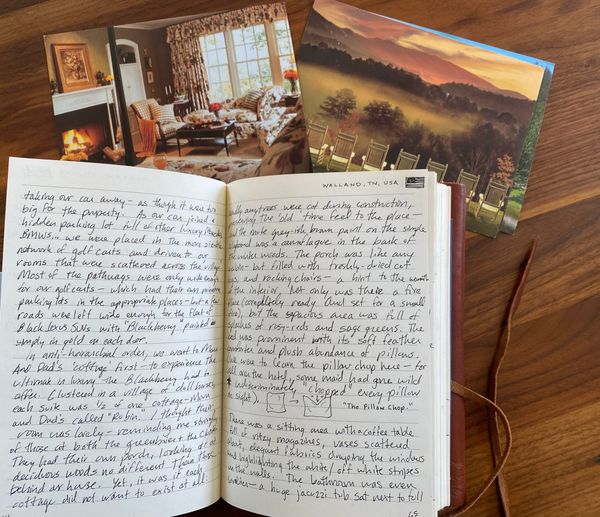 taking our car away - as though it were too
big for the property. As our car joined a
hidden parking lot full of other luxury
BMWs - we were placed in the more
network of golf carts and driven to our
rooms that were scattered across the village.
Most of the pathways were only wide enough
for our golf carts - which had their own
parking lots in the appropriate places - but a few
roads were left wide enough for the fleet of
Black lexus SUVs with "Blackberry" painted
simply in gold on each door.
In anti-hierarchial order, we went to Mom
And Dad's cottage first - to experience the
ultimate in luxury The Blackberry had to
offer. Clustered in a village of small houses,
each suite was ½ of one cottage - Mom
and Dad's called "Robin". I thought their
room was lovely - reminding me strongly
of those at both the greenbrier + the
They had their own porch, looking at
deciduous woods no different than those
behind our house. Yet, it was if each
cottage did not want to exist at all.
WALLAND, TN, USA
any trees were cut during construction,
the old time feel to the place -
and the mute grey-ish brown paint on the simple
was a camouflage in the bark of
the winter woods. The porch was like any
- but filled with freshly-dried cut
and rocking chairs - a hint to the warmth
of the interior. Not only was there a fire
place (completely ready and set for a small
fire), but the spacious area was full of
splashes of rosy-reds and sage greens. The
bed was prominent with its soft feather
comforter and plush abundance of pillows.
we were to learn the pillow chop here - for
all over the hotel, some maid had gone wild
+ indiscriminately "chopped" every pillow
in sight).
"The Pillow Chop."
There was a sitting area with a coffee table
full of ritzy magazines, vases scattered
about, elegant fabrics draping the windows
and highlighting the white/off white stripes
on the walls. The bathroom was even
- a huge jacuzzi tub sat next to full
65